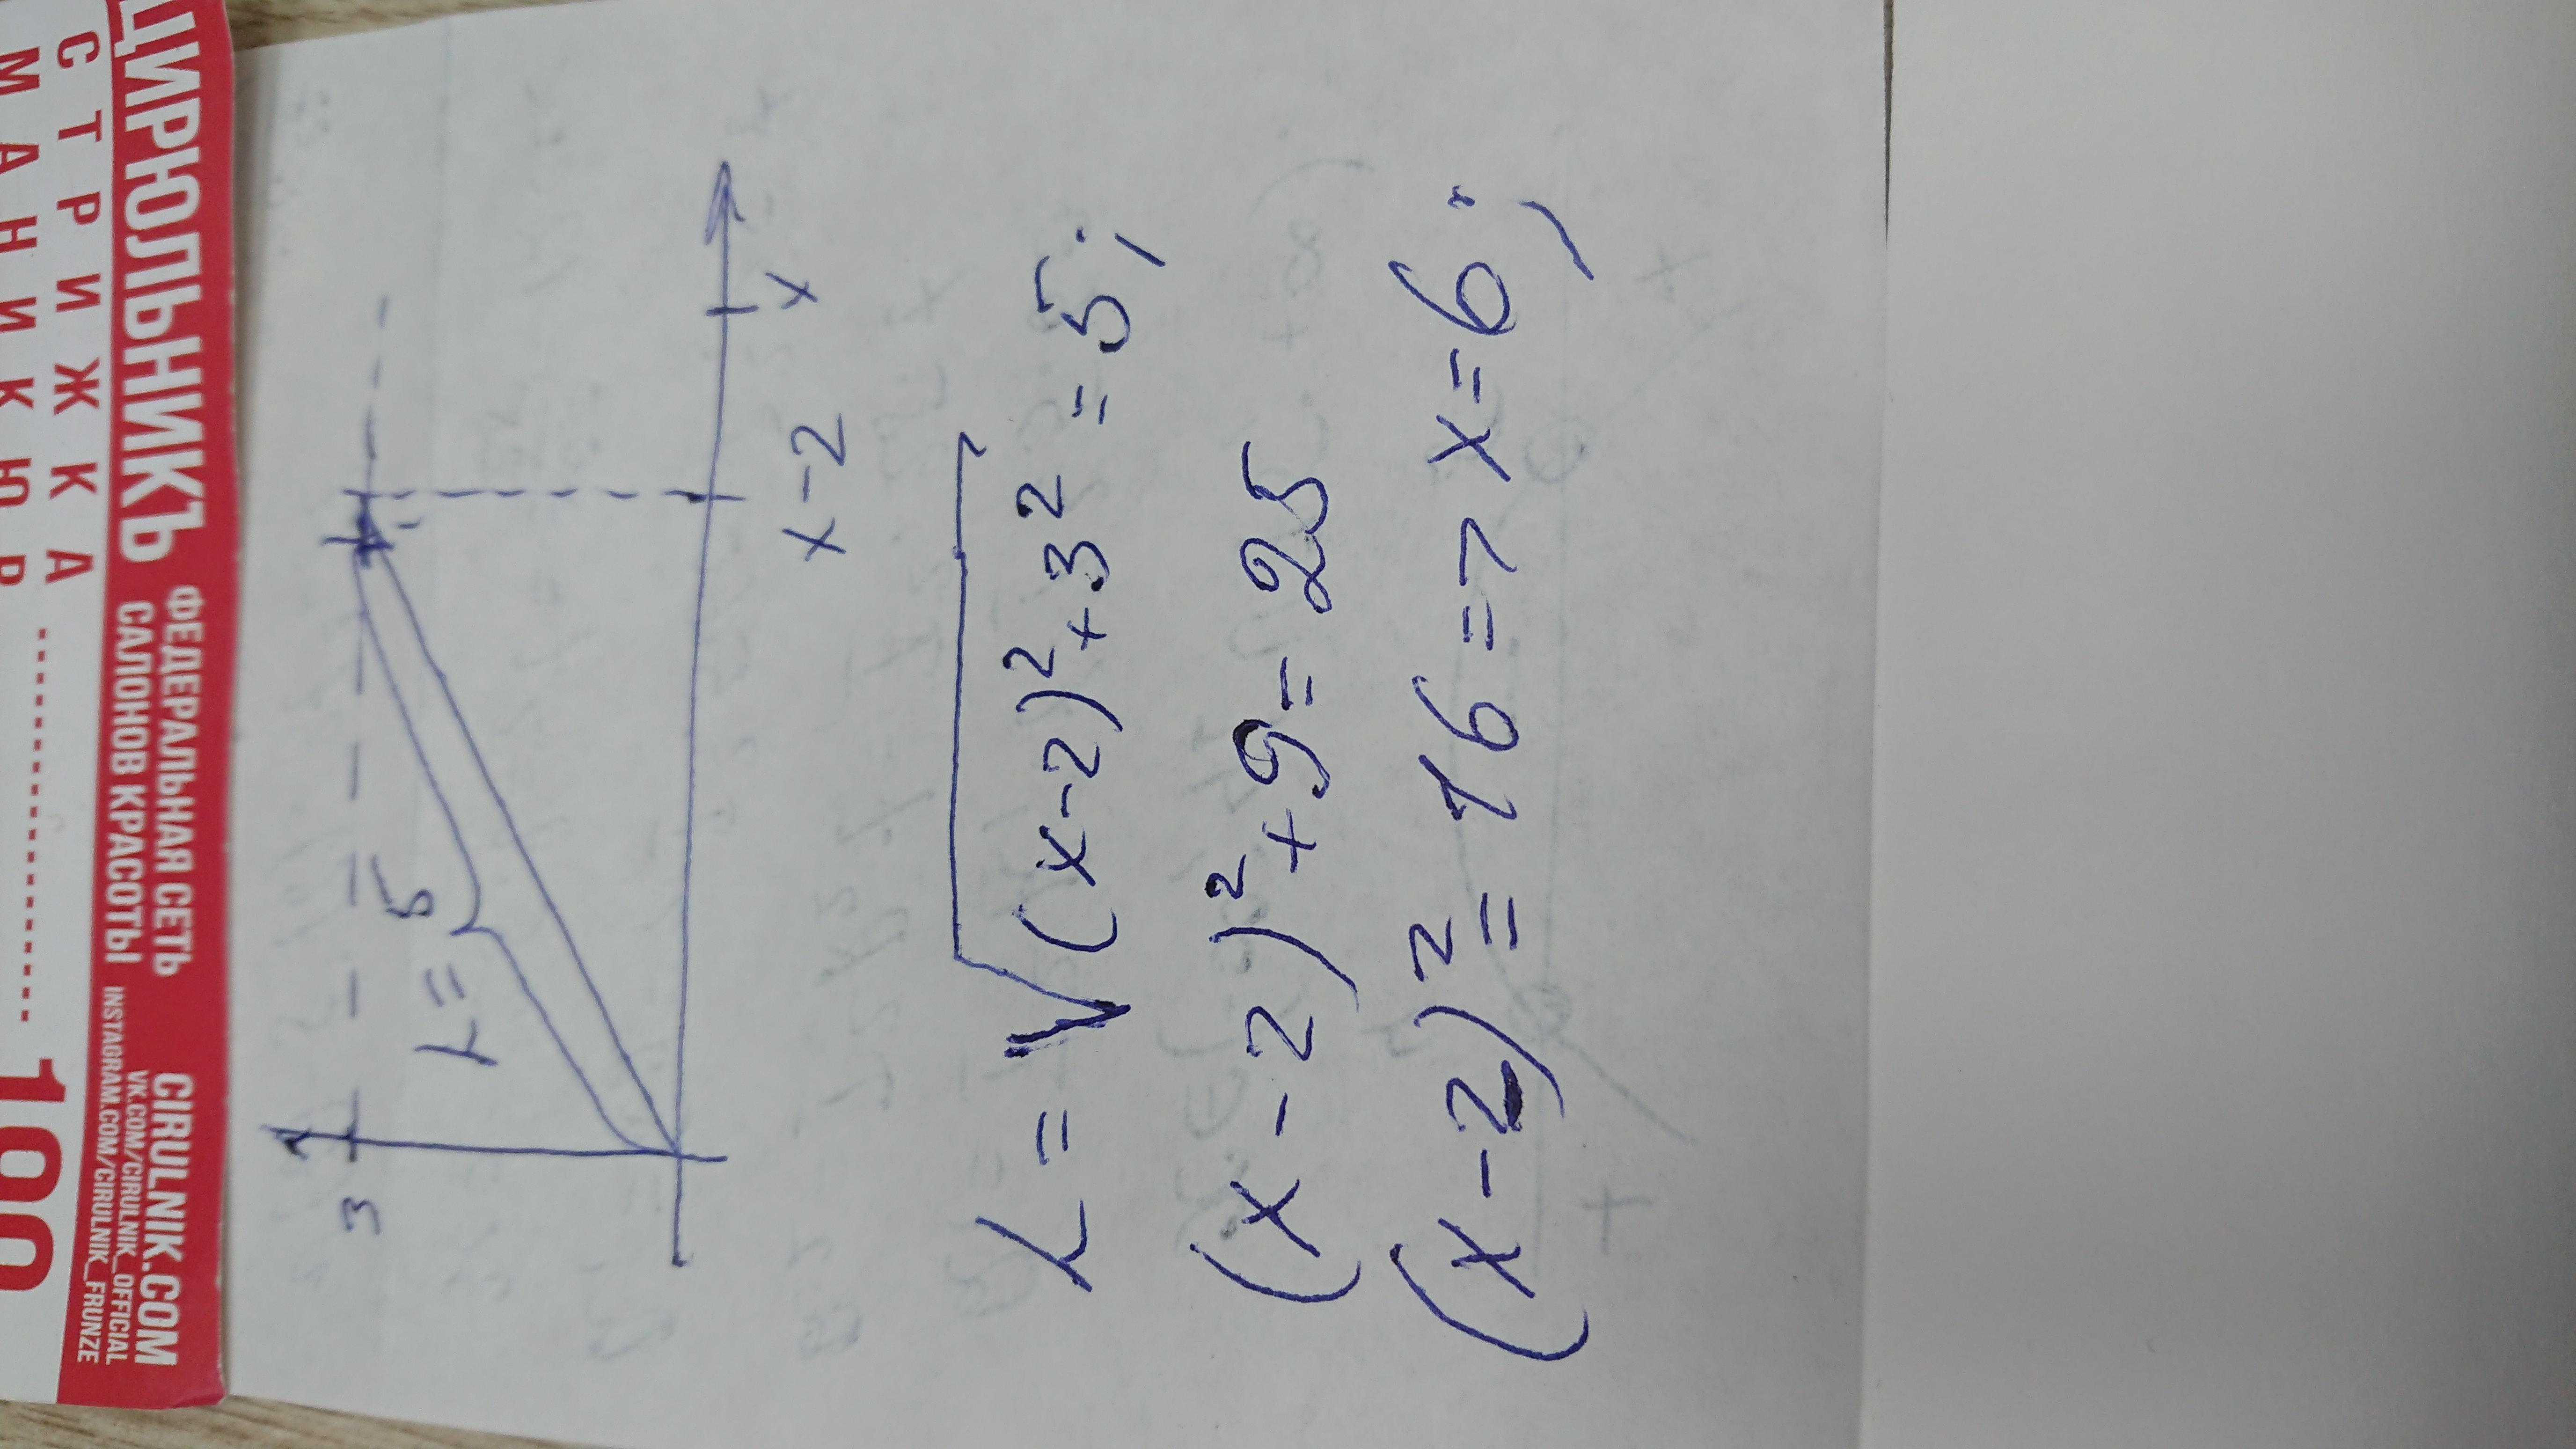 СТРИЖКА
МАНИКЮР
190
ЦИРЮЛЬНИКЪ
ФЕДЕРАЛЬНАЯ СЕТЬ
САЛОНОВ КРАСОТЫ
CIRULNIK.COM
VK.COM/CIRULNIK_OFFICIAL
INSTAGRAM.COM/CIRULNIK_FRUNZE
3
L=5
x-2 x
L=√((x-2)²+3²) =5;
(x-2)²+9=25
(x-2)²=16=> x=6;